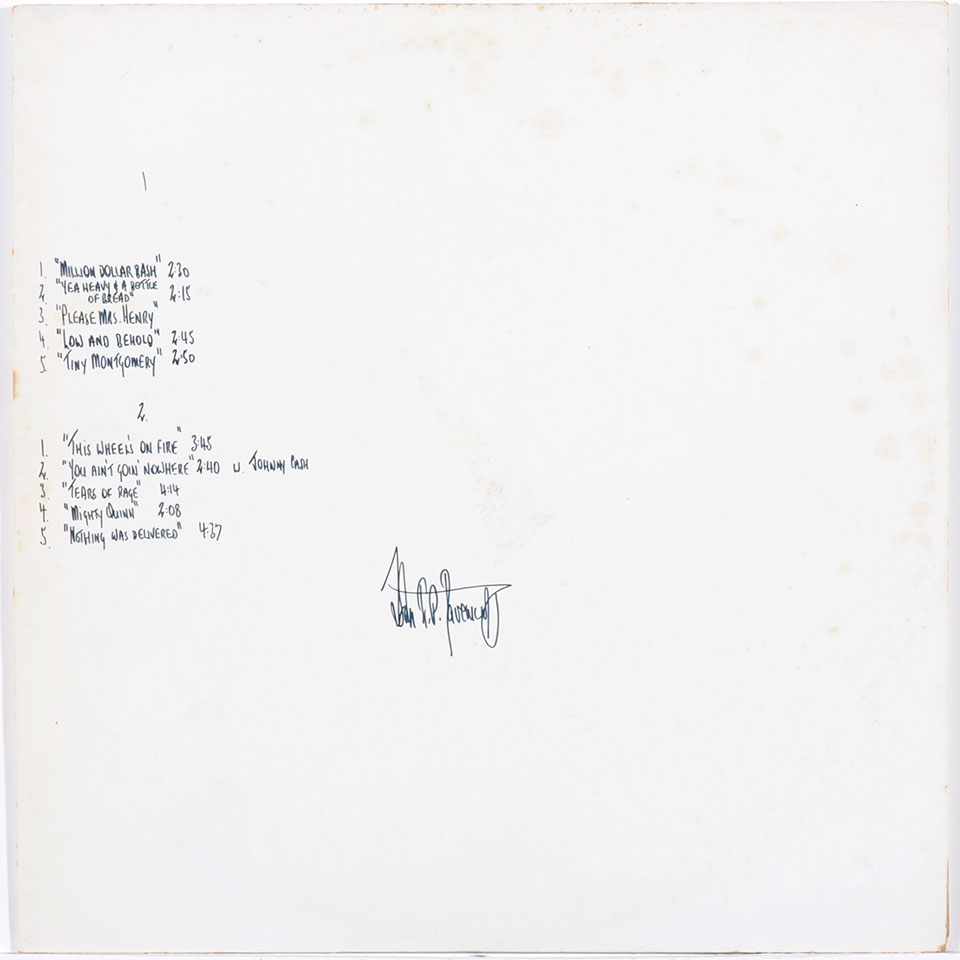 1
1. "MILLION DOLLAR BASH" 2:30
2. "YEA HEAVY & A BOTTLE
OF BREAD" 2:15
3. "PLEASE MRS. HENRY"
4. "LOW AND BEHOLD" 2:45
5. "TINY MONTGOMERY" 2:50
2.
1. "THIS WHEEL'S ON FIRE" 3:45
2. "YOU AIN'T GOIN' NOWHERE" 2:40 W. JOHNNY CASH
3. "TEARS OF RAGE" 4:14
4. "MIGHTY QUINN" 2:08
5. "NOTHING WAS DELIVERED" 4:37
John R.P. Ravenscroft